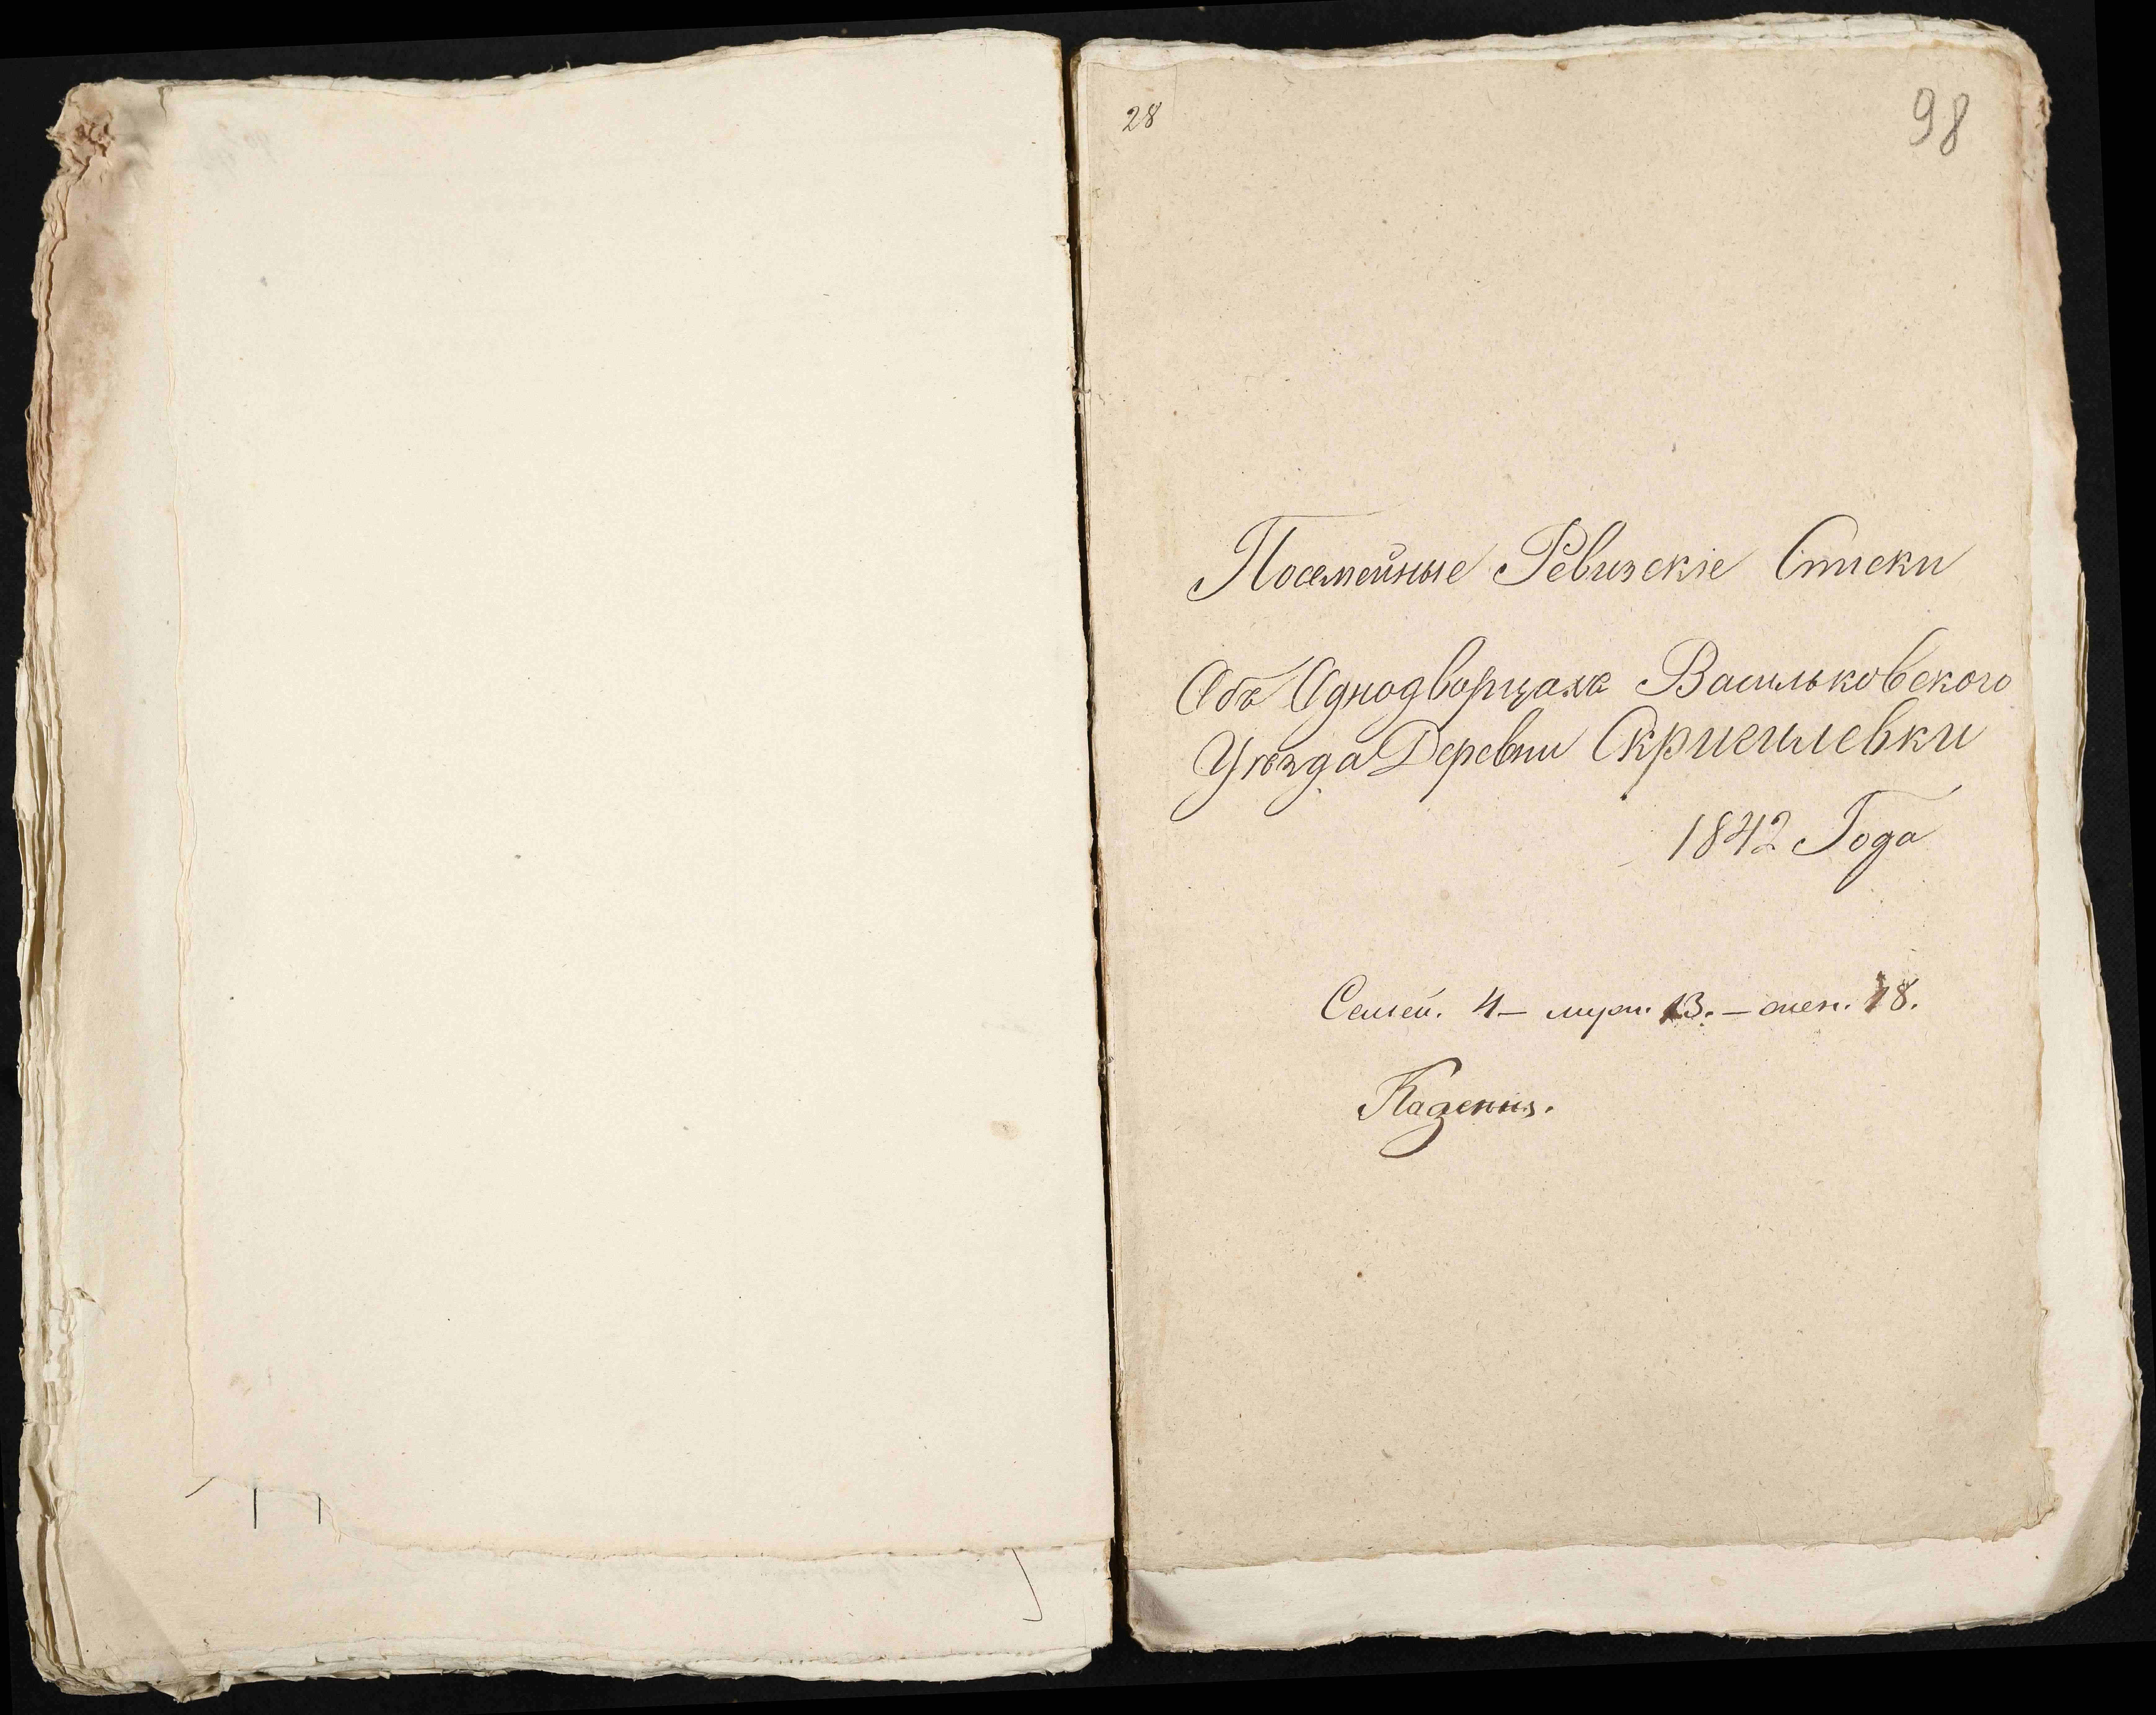 28
98
Посемейные Ревизскіе Списки
Объ Однодворцахъ Васильковскаго
Уѣзда Деревни Скригилевки
1842 Года
Семей. 4 – муж. 13. – жен. 18.